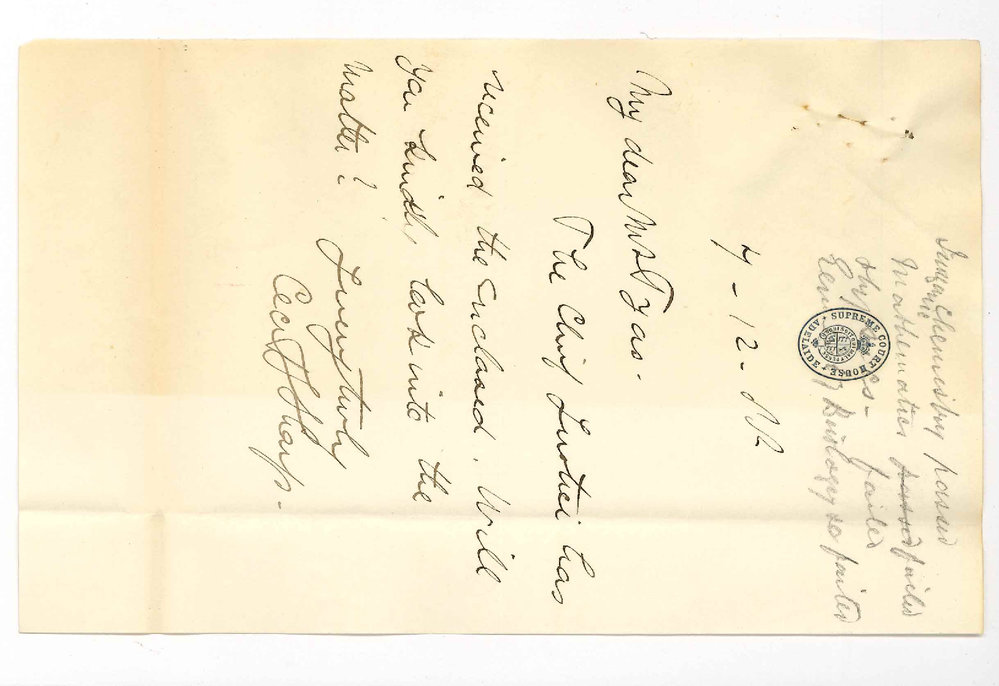 Inorganic Chemistry passed
Mathematics passed failed
Physics - failed
Elem Biology so failed
SUPREME COURT HOUSE
ADELAIDE
7-12-88
My dear Mr Tyas.
The Chief Justice has
received the enclosed. Will
you kindly look into the
matter?
Yours truly
Cecil J Sharp.